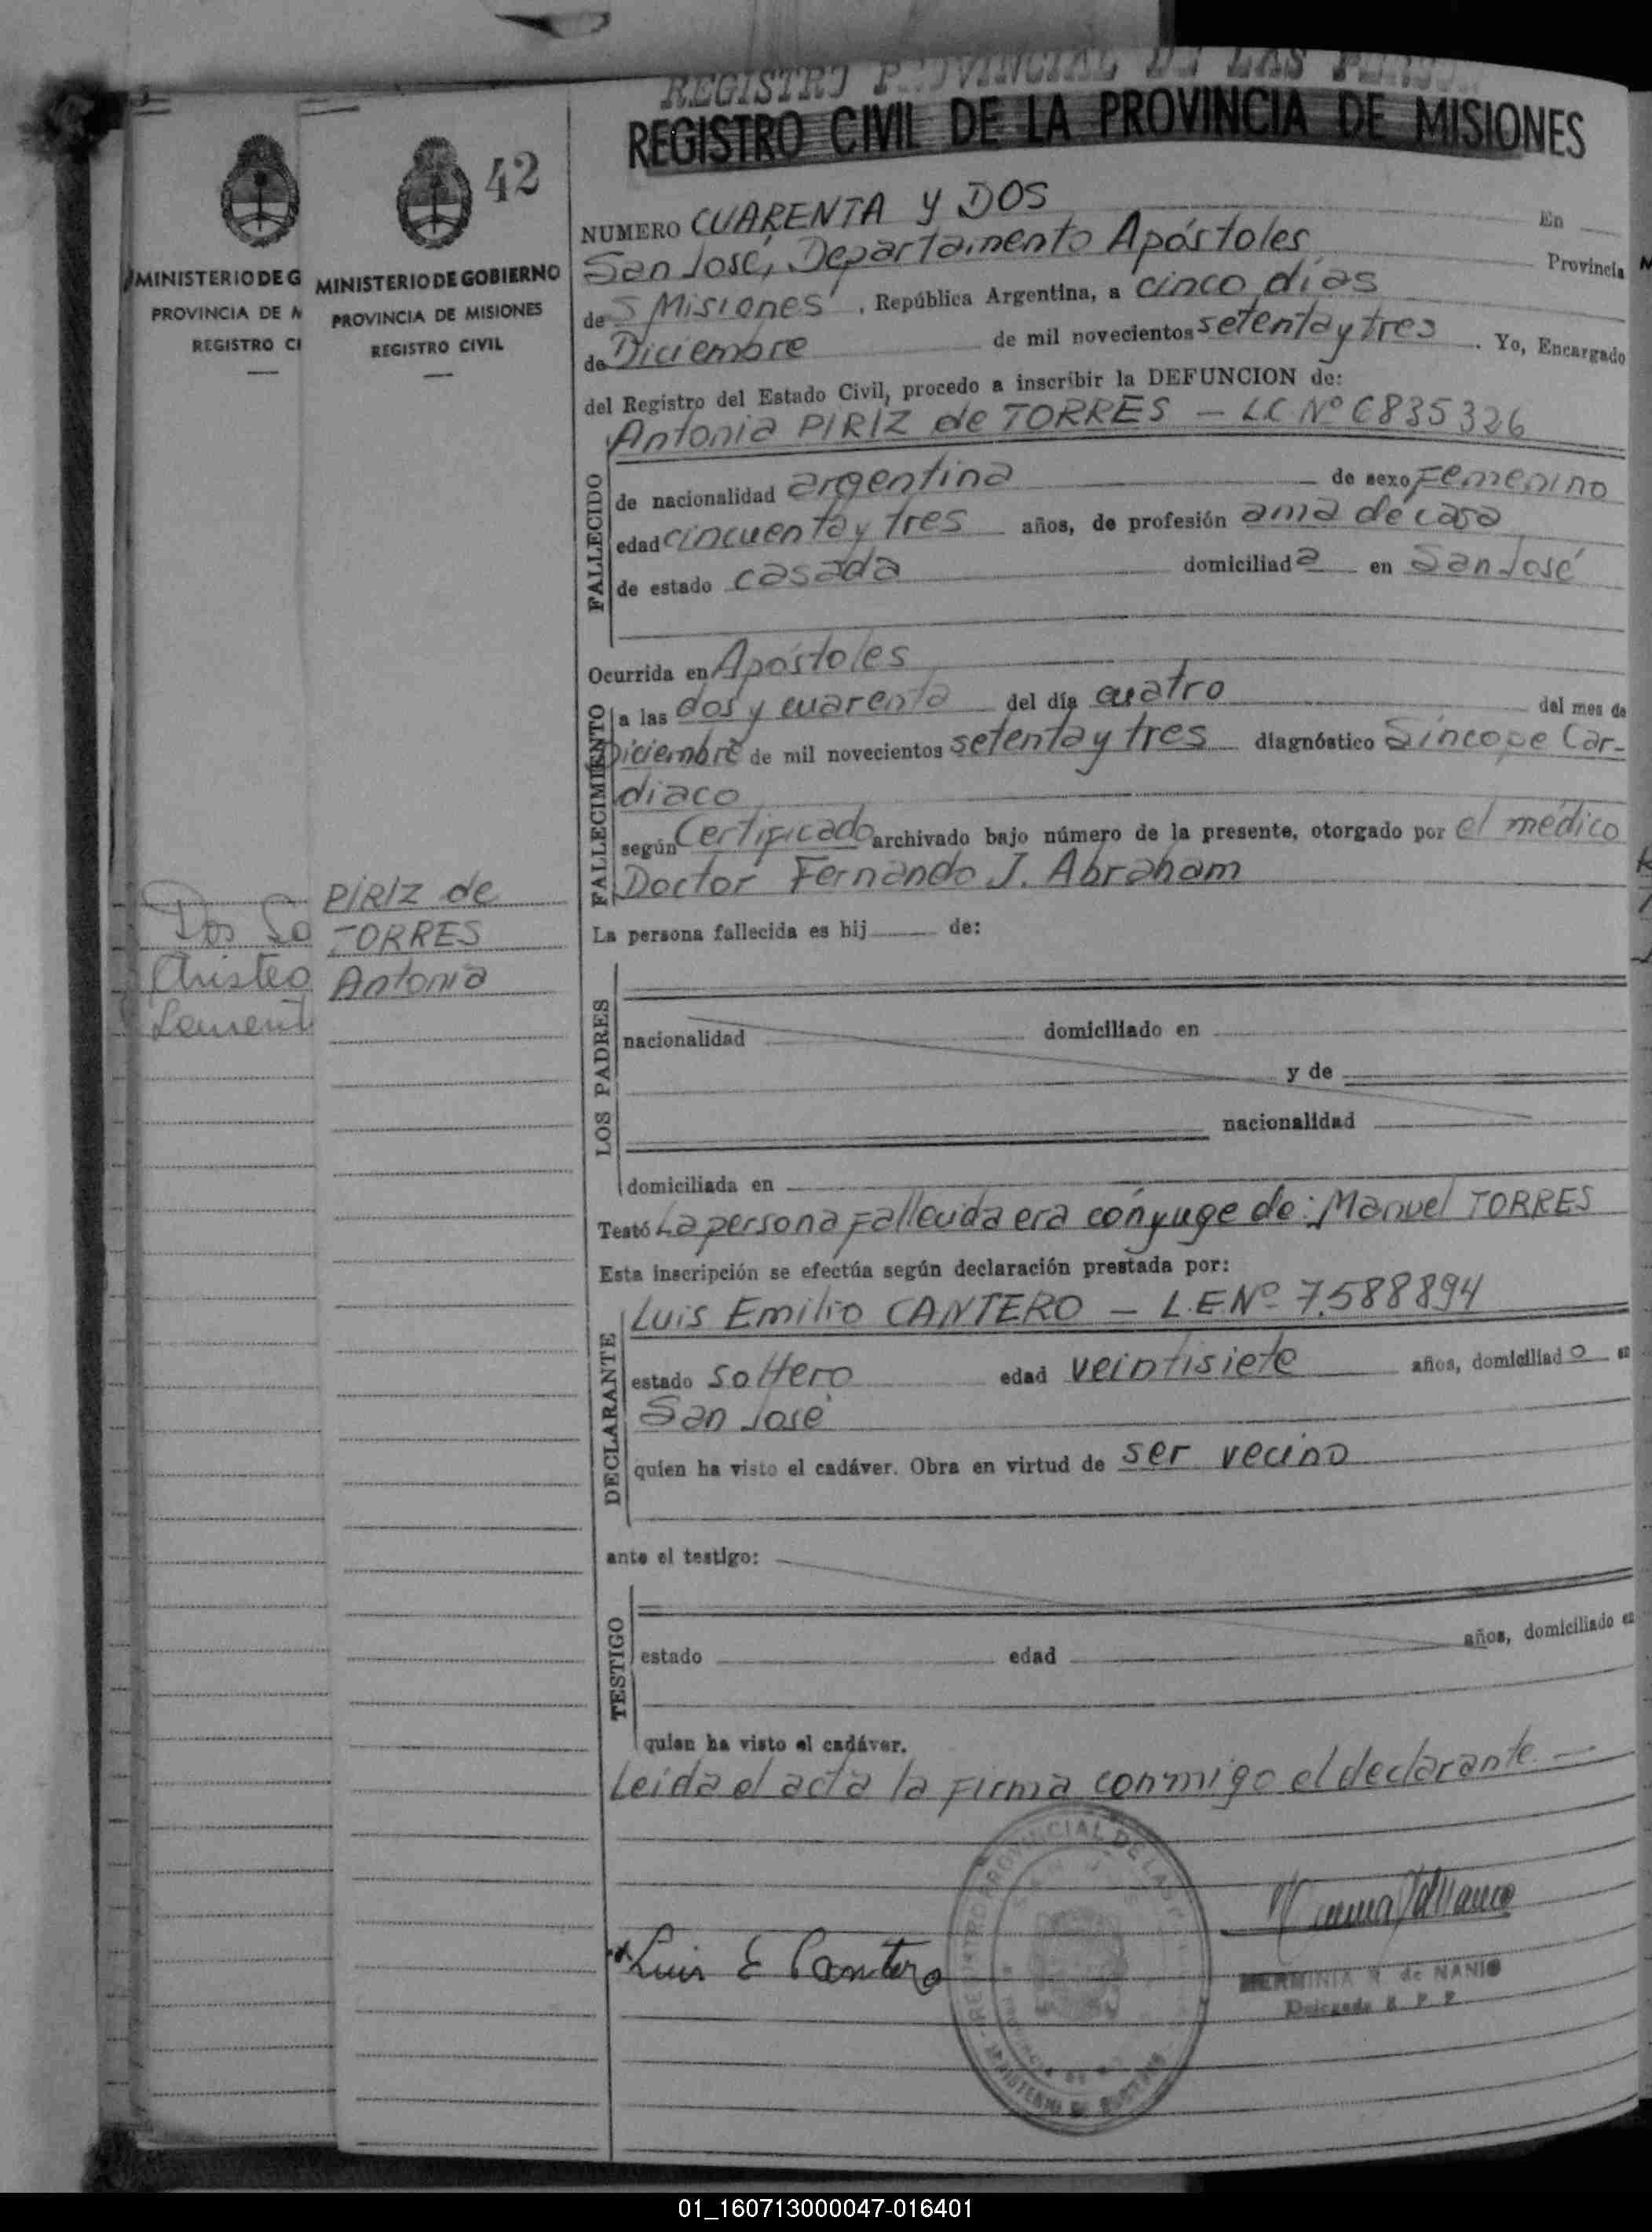 REGISTRO PROVINCIAL DE LAS
REGISTRO CIVIL DE LA PROVINCIA DE MISIONES
42
MINISTERIO DE G
PROVINCIA DE M
REGISTRO CI
MINISTERIO DE GOBIERNO
PROVINCIA DE MISIONES
REGISTRO CIVIL
Dos
Aristeo
PIRIZ de
TORRES
Antonia
NUMERO CUARENTA Y DOS En
San José, Departamento Apóstoles Provincia
de Misiones, República Argentina, a cinco días
de Diciembre de mil novecientos setenta y tres. Yo, Encargado
del Registro del Estado Civil, procedo a inscribir la DEFUNCION de:
Antonia PIRIZ de TORRES - LC Nº 6835326
FALLECIDO
de nacionalidad argentina de sexo Femenino
edad cincuenta y tres años, de profesión ama de casa
de estado casada domiciliada en San José
Ocurrida en Apóstoles
FALLECIMIENTO
a las dos y cuarenta del día cuatro del mes de
Diciembre de mil novecientos setenta y tres diagnóstico Síncope Car-
diaco
según Certificado archivado bajo número de la presente, otorgado por el médico
Doctor Fernando J. Abraham
La persona fallecida es hij de:
LOS PADRES
nacionalidad domiciliado en
y de
nacionalidad
domiciliada en
Testó La persona fallecida era cónyuge de: Manuel TORRES
Esta inscripción se efectúa según declaración prestada por:
DECLARANTE
Luis Emilio CANTERO - L.E Nº 7.588894
estado soltero edad veintisiete años, domiciliado en
San José
quien ha visto el cadáver. Obra en virtud de ser vecino
ante el testigo:
TESTIGO
estado edad años, domiciliado en
quien ha visto el cadáver.
Leida el acta la firma conmigo el declarante.—
Luis E Cantero
REGISTRO PROVINCIAL DE LAS
MINISTERIO DE GOBIERNO
HERMINIA de NANIO
Delegada R. P. P.
01_160713000047-016401